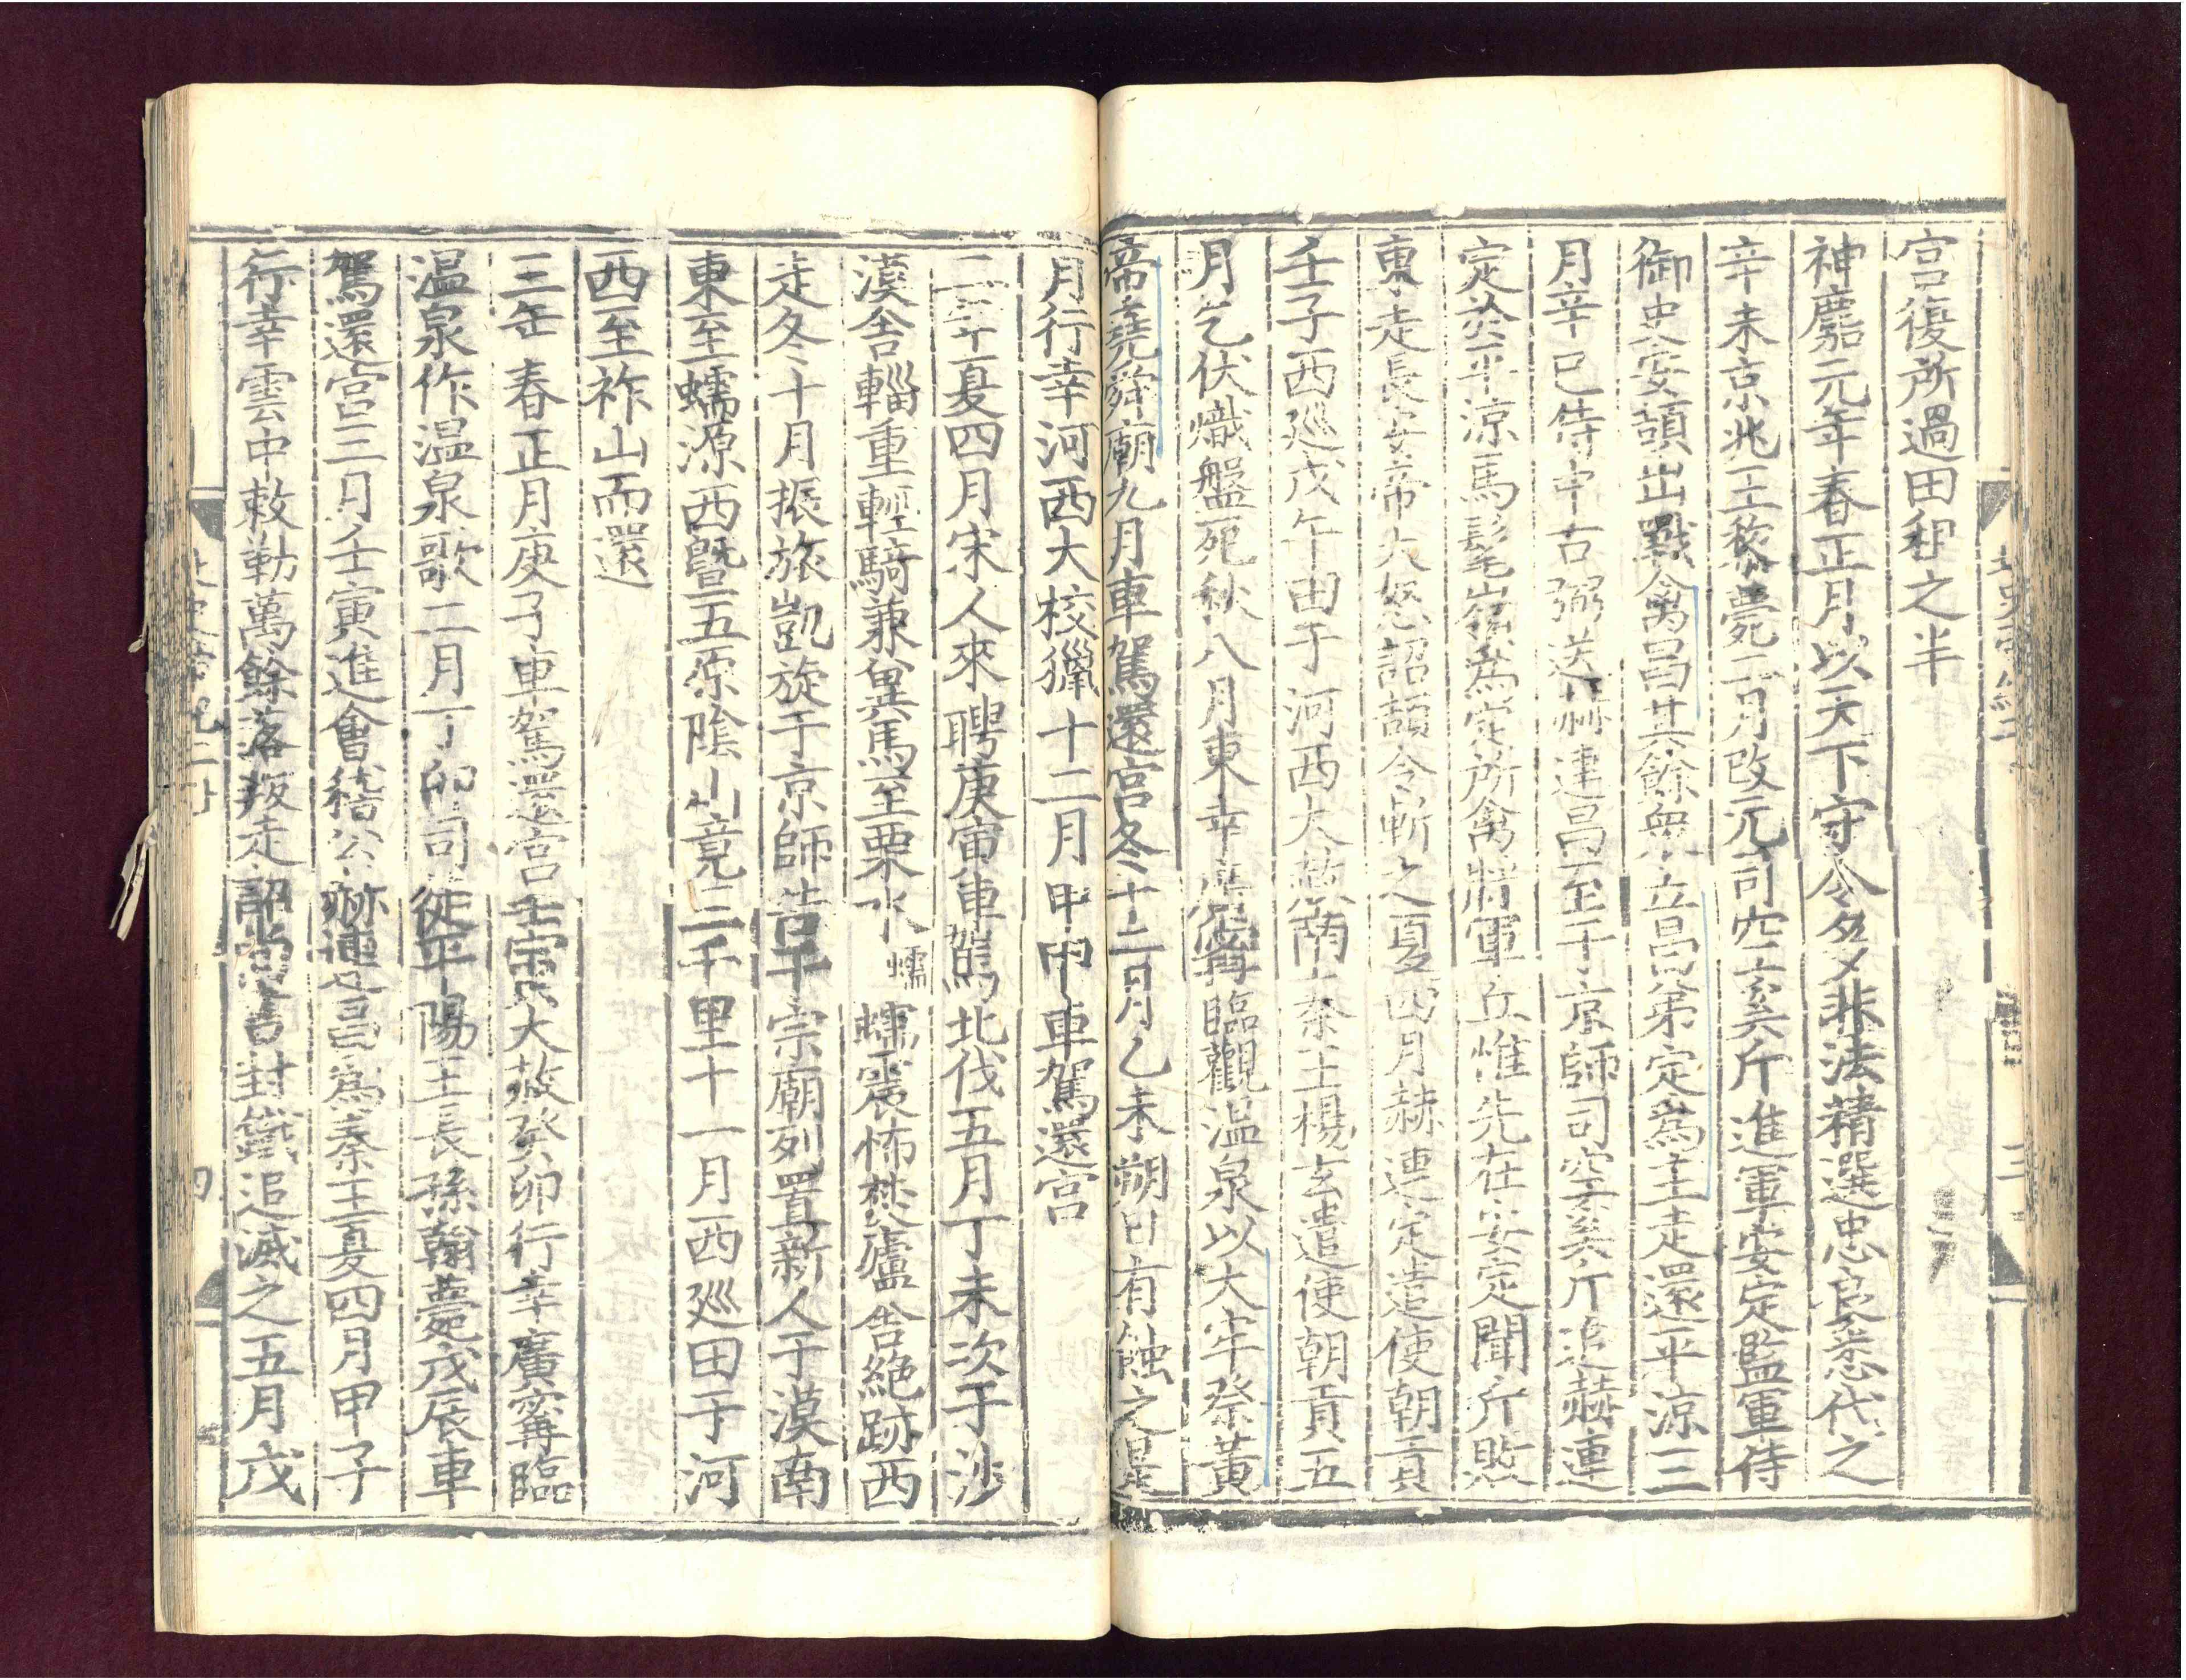 宫復所過田租之半
神䴥元年春正月以天下守令多非法精選忠良悉代之
辛未京兆王黎薨二月改元司空奚斤進軍安定監軍侍
御史安頡出戰禽昌其餘衆立昌弟定爲主走還平涼三
月辛巳侍中古弼送赫連昌至于京師司空奚斤追赫連
定於平涼馬髦嶺爲定所禽將軍丘惟先在安定聞斤敗
東走長安帝大怒詔頡令斬之夏四月赫連定遣使朝貢
壬子西廵戊午田于河西大赦南秦王楊玄遣使朝貢五
月乞伏熾盤死秋八月東幸廣寗臨觀温泉以大牢祭黄
帝堯舜廟九月車駕還宫冬十一月乙未朔日有蝕之是
月行幸河西大校獵十二月甲申車駕還宫
二年夏四月宋人來聘庚寅車駕北伐五月丁未次于沙
漠舍輜重輕騎兼異馬至栗水蠕蠕震怖焚廬舍絶跡西
走冬十月振旅凱旋于京師告于宗廟列置新人于漠南
東至蠕源西曁五原隂山竟三千里十一月西廵田于河
西至祚山而還
三年春正月庚子車駕還宫壬寅大赦癸卯行幸廣寗臨
温泉作温泉歌二月丁卯司徒平陽王長孫翰薨戊辰車
駕還宫三月壬寅進會稽公赫連昌爲秦王夏四月甲子
行幸雲中敕勒萬餘落叛走詔尚書封鐵追滅之五月戊